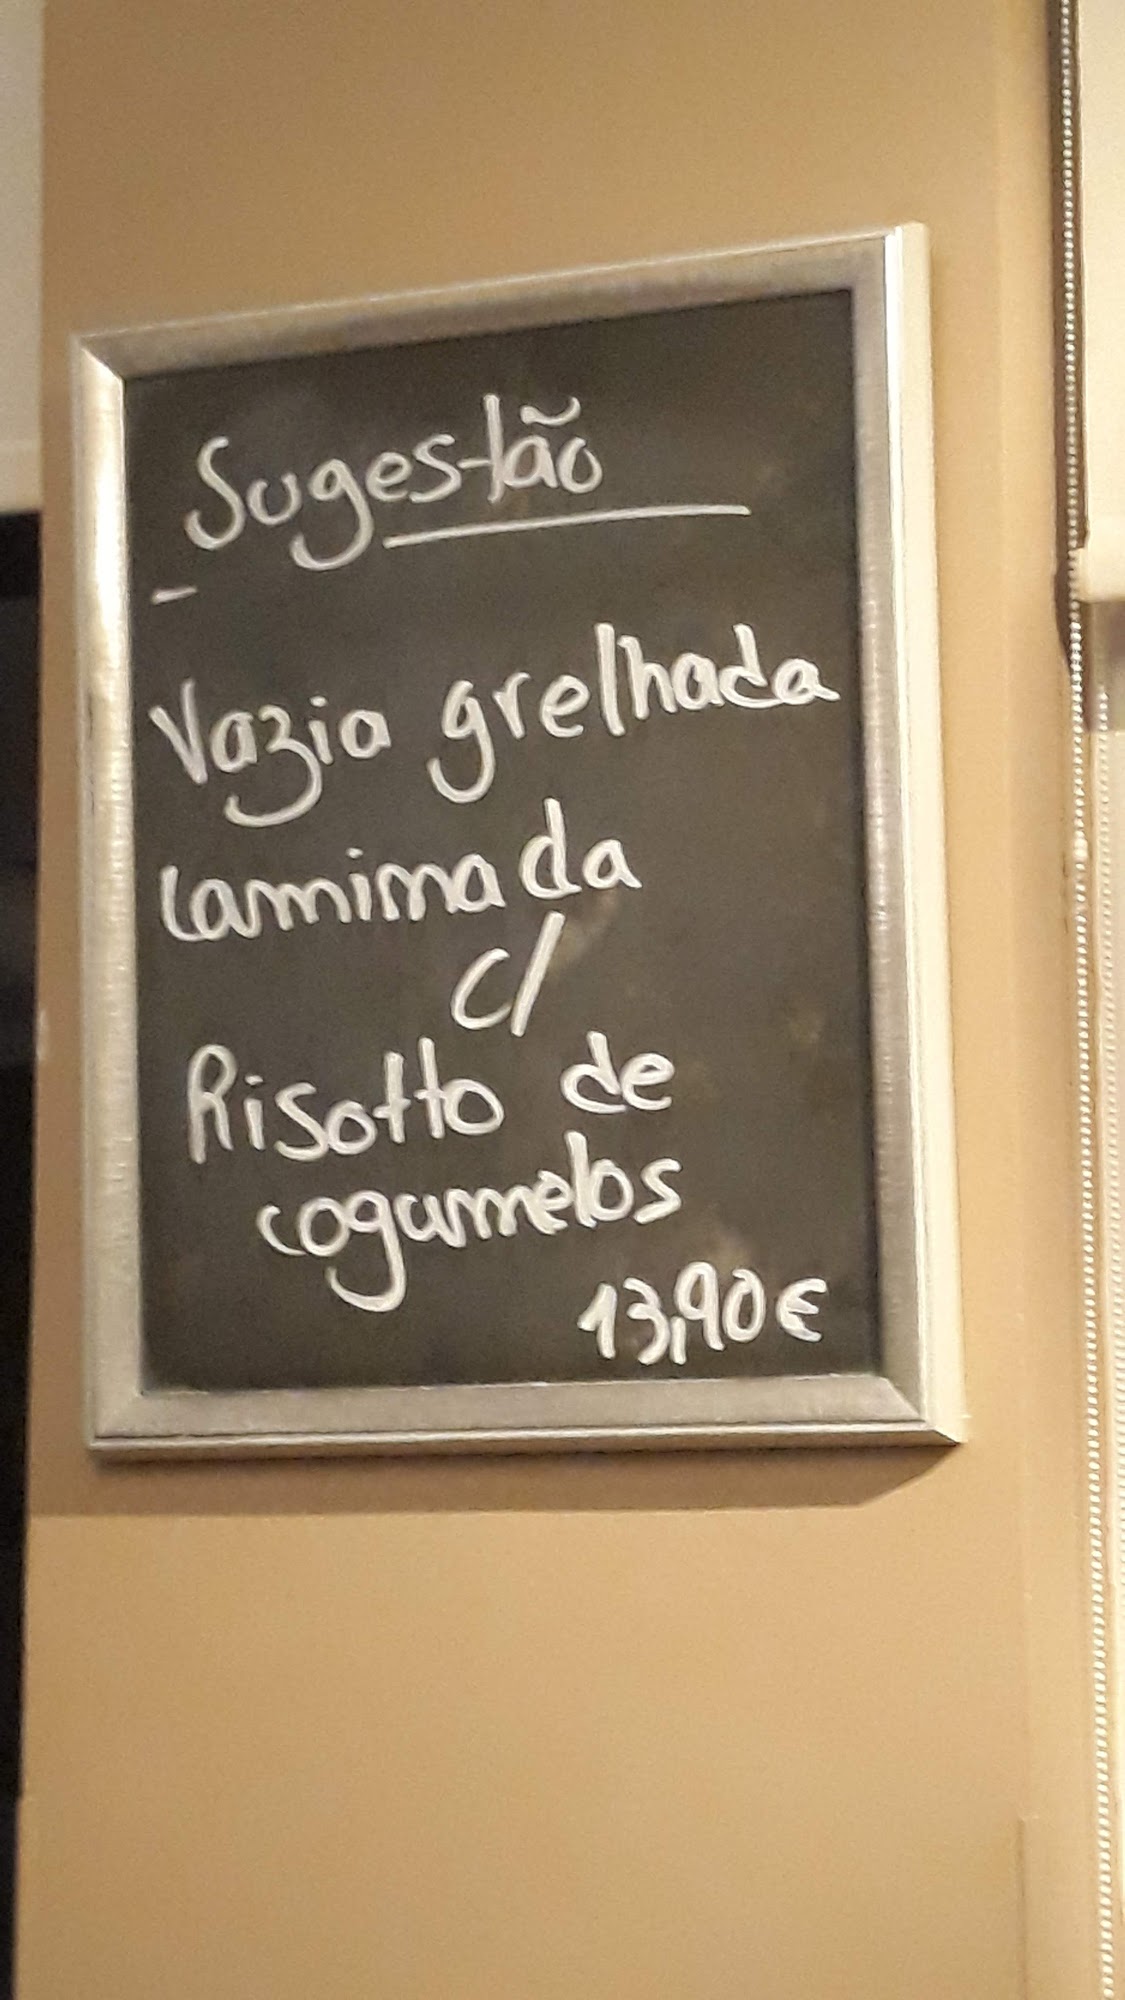 Sugestão
-
Vazia grelhada
laminada
c/
Risotto de
cogumelos
13,90€